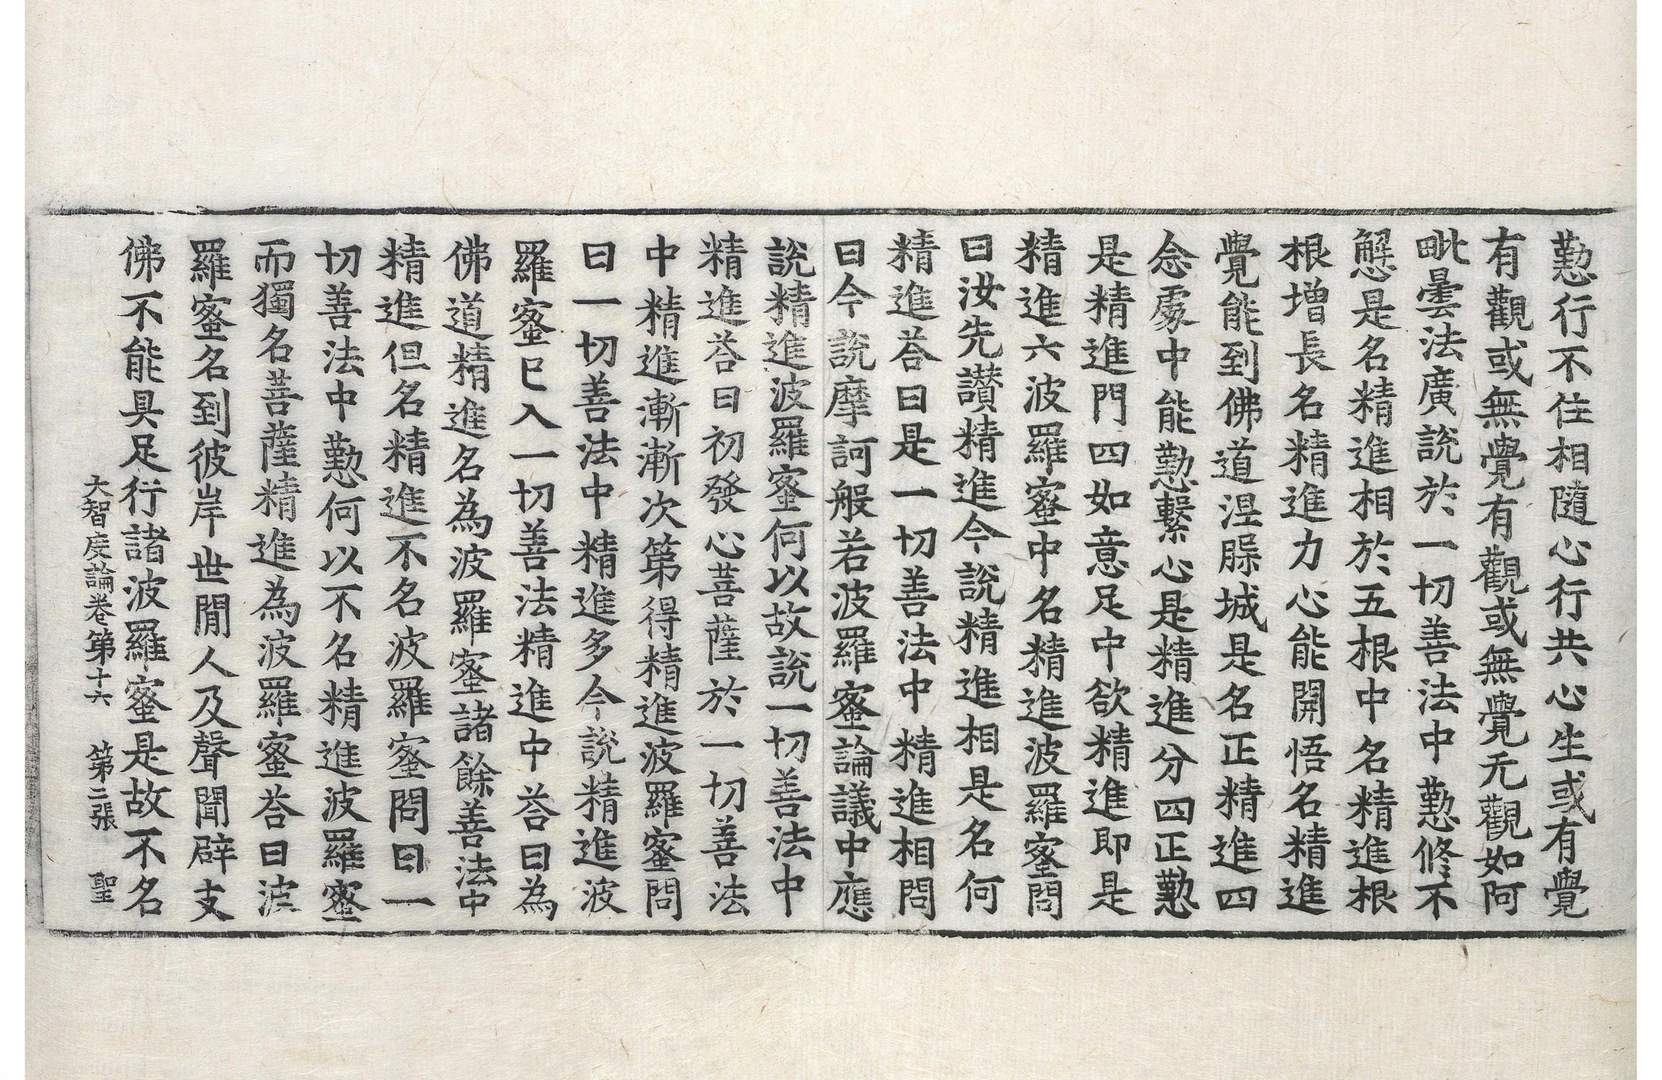 懃行不住相隨心行共心生或有覺
有觀或無覺有觀或無覺无觀如阿
毗曇法廣說於一切善法中懃修不
懈是名精進相於五根中名精進根
根增長名精進力心能開悟名精進
覺能到佛道涅縣城是名正精進四
念處中能懃繫心是精進分四正懃
是精進門四如意足中欲精進即是
精進六波羅蜜中名精進波羅蜜問
曰汝先讚精進今說精進相是名何
精進荅曰是一切善法中精進相問
曰今說摩訶般若波羅蜜論議中應
說精進波羅蜜何以故說一切善法中
精進荅曰初發心菩薩於一切善法
中精進漸漸次第得精進波羅蜜問
曰一切善法中精進多今說精進波
羅蜜已入一切善法精進中荅曰為
佛道精進名為波羅蜜諸餘善法中
精進但名精進不名波羅蜜問曰一
切善法中懃何以不名精進波羅蜜
而獨名菩薩精進為波羅蜜荅曰波
羅蜜名到彼岸世間人及聲聞辟支
佛不能具足行諸波羅蜜是故不名
大智度論卷第十六 第二張 聖